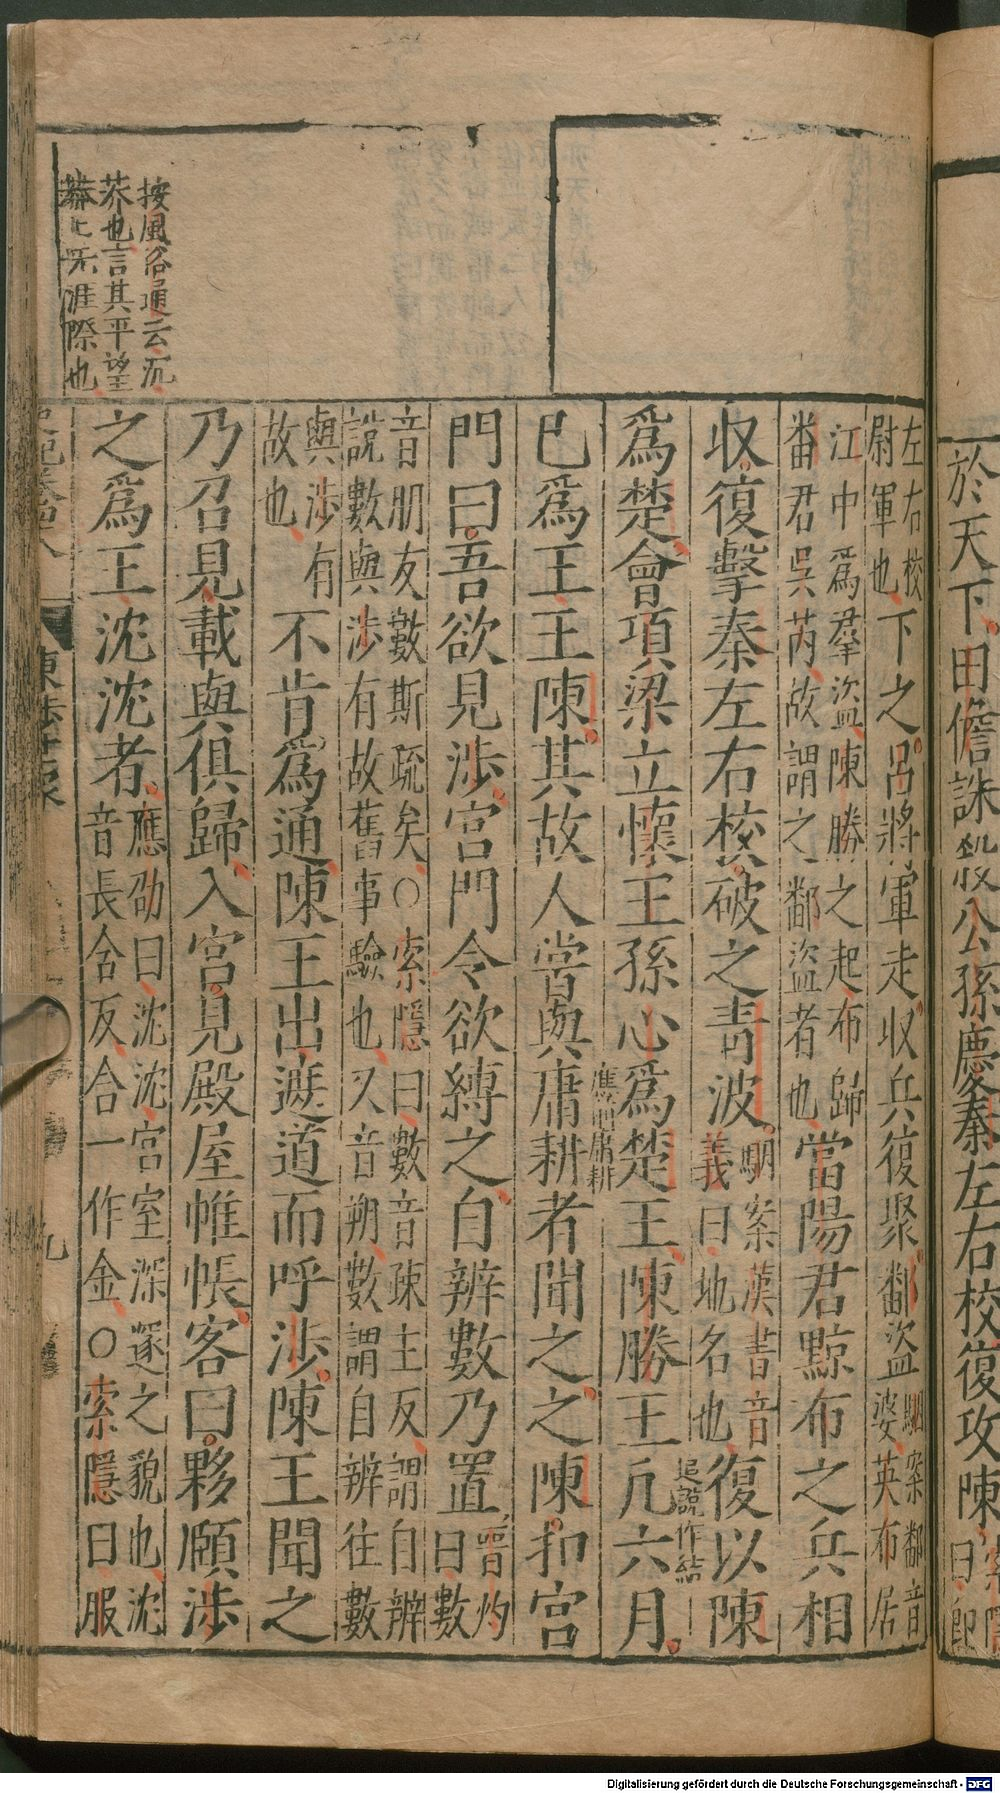 於天下田儋誅殺公孫慶秦左右校復攻陳
左右校
尉軍也
下之呂將軍走收兵復聚鄱盜
駰案鄱音
婆英布居
江中爲羣盜陳勝之起布歸
番君吳芮故謂之鄱盜者也
當陽君黥布之兵相
收復擊秦左右校破之青波
駰案漢書音
義曰地名也
復以陳
追說作結
爲楚會項梁立懷王孫心爲楚王陳勝王凡六月
應吧庸耕
已爲王王陳其故人嘗與庸耕者聞之之陳扣宮
門曰吾欲見涉宮門令欲縛之自辨數乃置
晉灼
曰數
音朋友數斯疏矣○索隱曰數音疎主反謂自辨
說數與涉有故舊事驗也又音朔數謂自辨往數
與涉有
故也
不肯爲通陳王出遮道而呼涉陳王聞之
乃召見載與俱歸入宮見殿屋帷帳客曰夥頤涉
之爲王沈沈者
應劭曰沈沈宮室深邃之貌也沈
音長含反含一作金○索隱曰服
按風俗通云沉
莽也言其平望
莽莽无涯際也
九
Digitalisierung gefördert durch die Deutsche Forschungsgemeinschaft - DFG